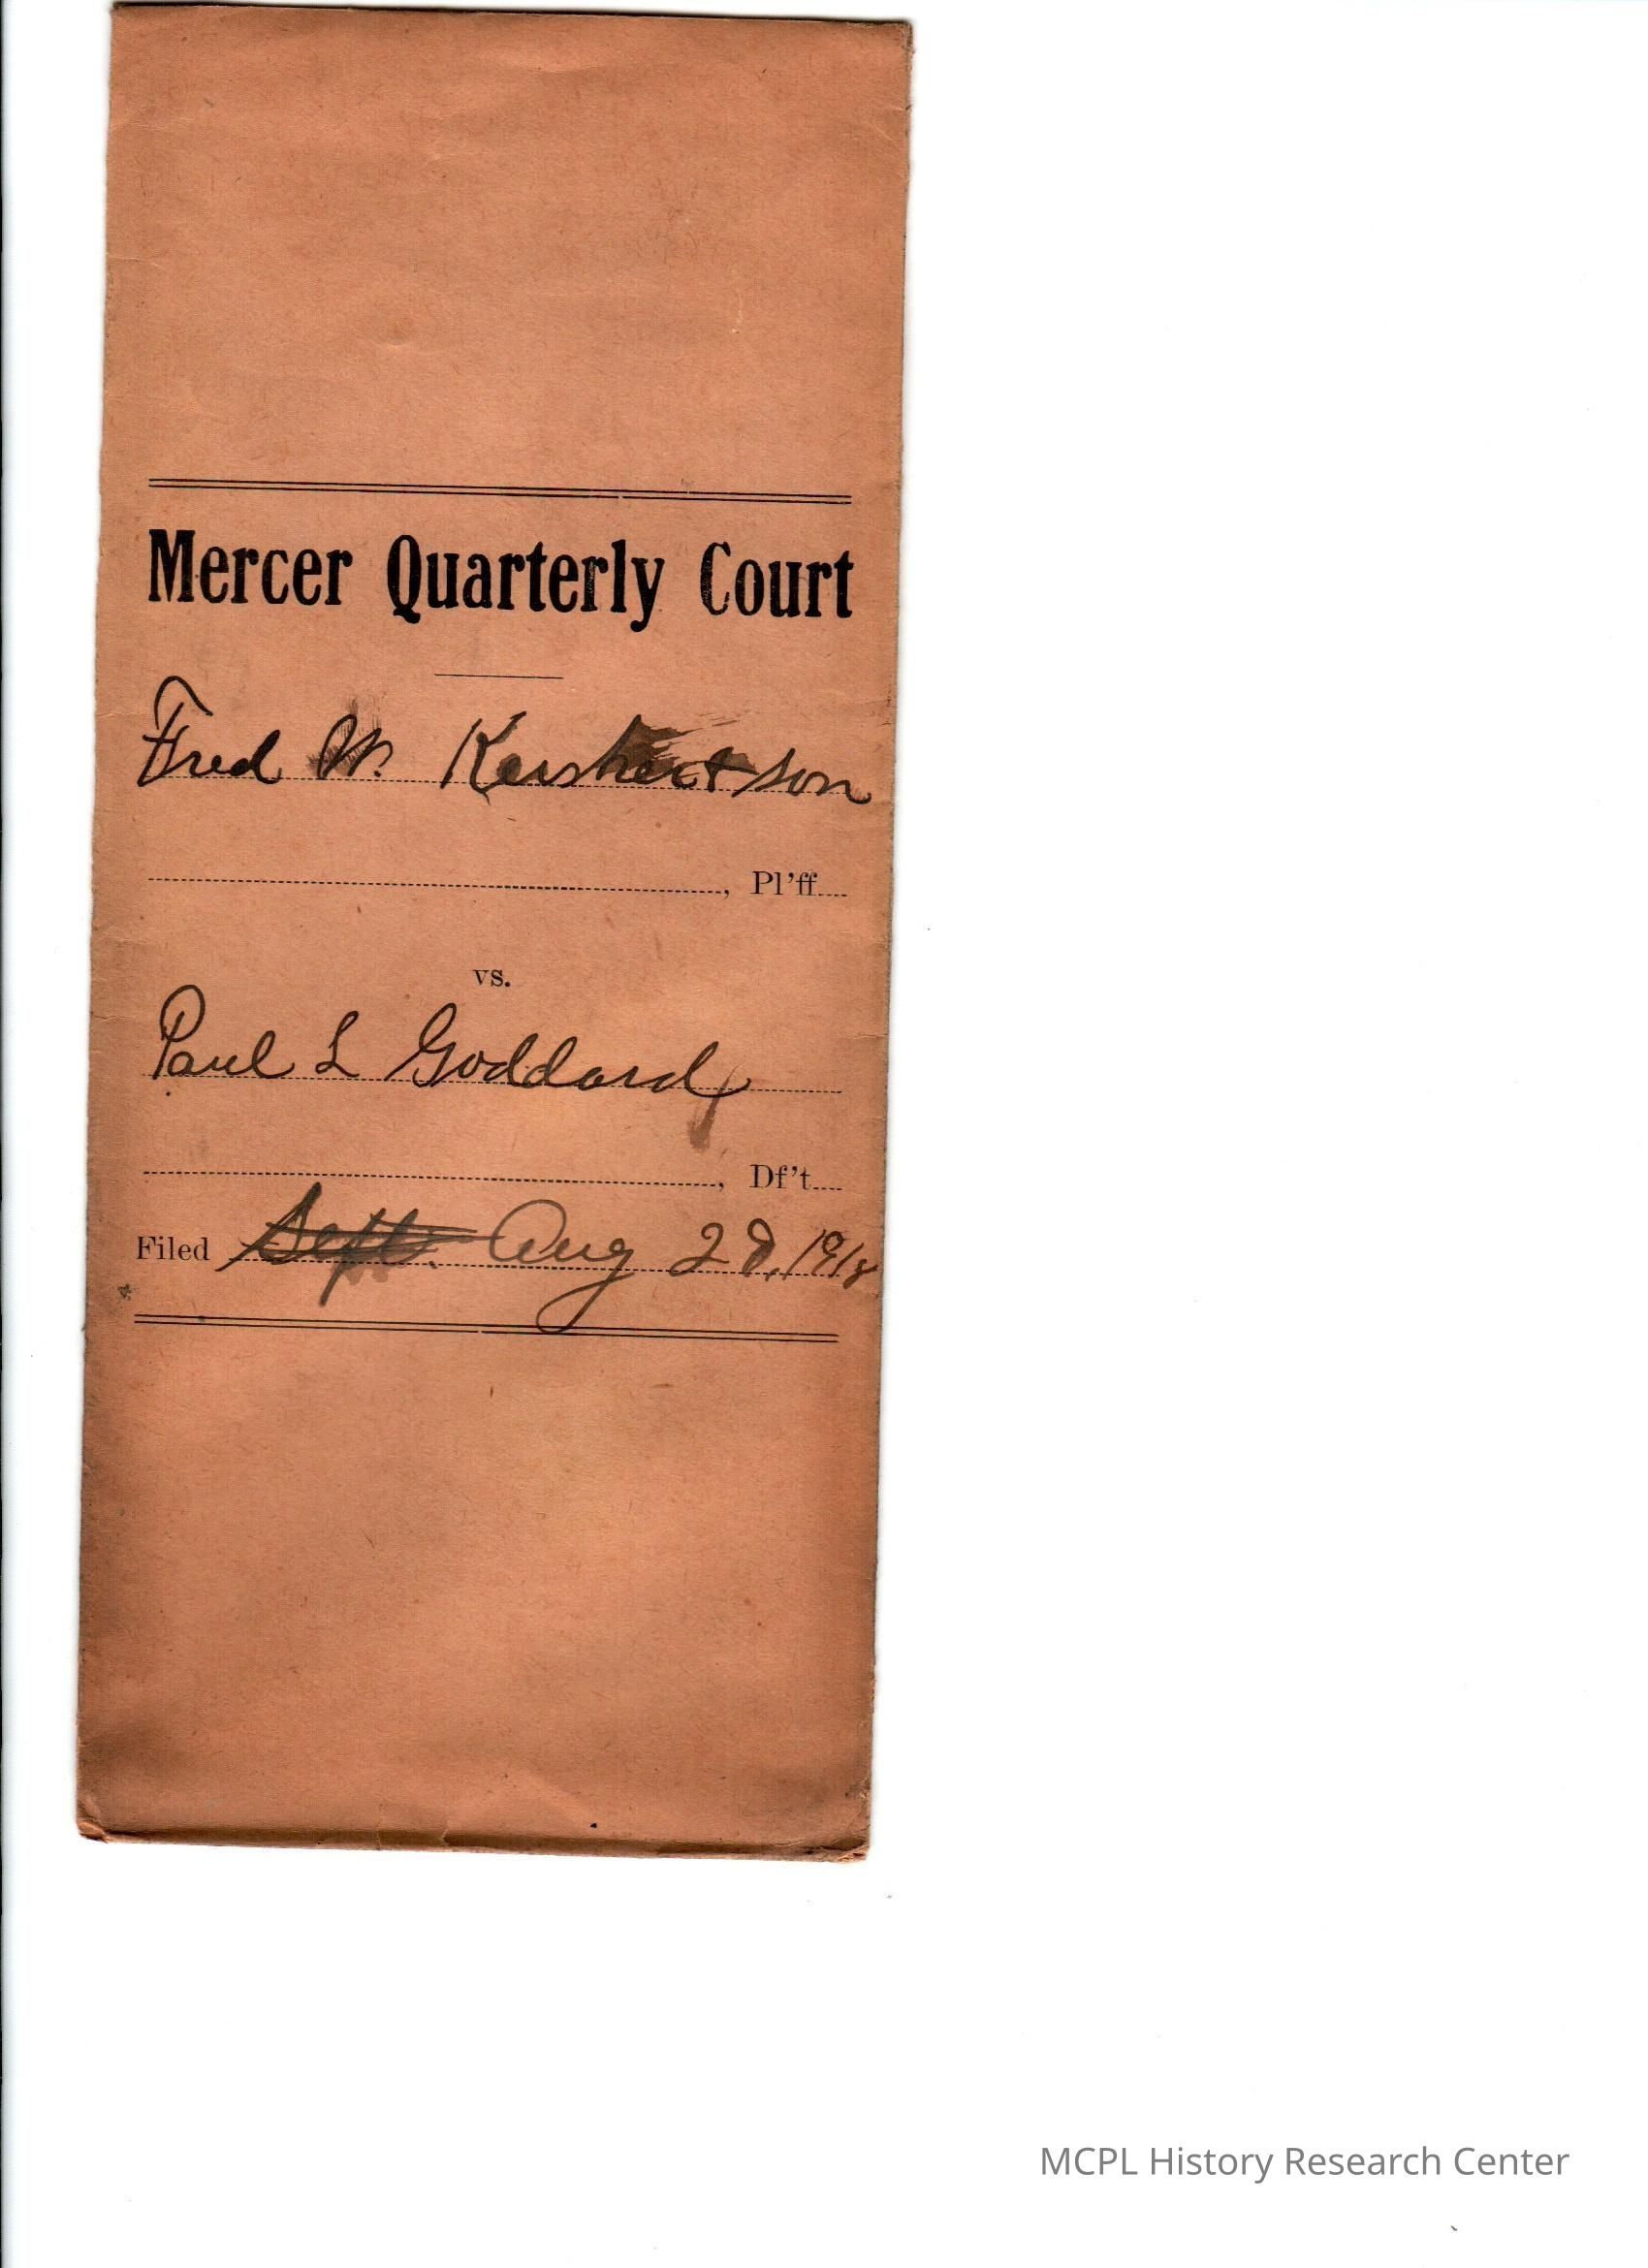 Mercer Quarterly Court
Fred W. & son
, Pl'ff
vs.
Paul L Goddard
, Df't
Filed Sept. Aug 28, 1918
MCPL History Research Center